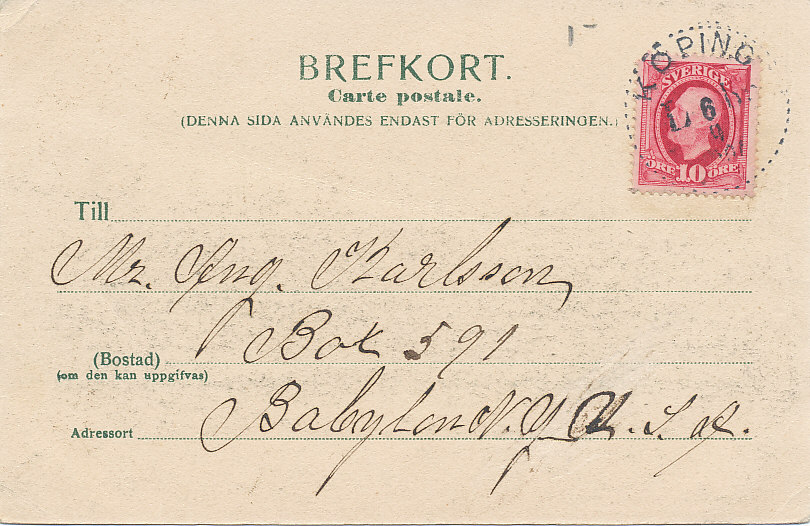 BREFKORT.
Carte postale.
(DENNA SIDA ANVÄNDES ENDAST FÖR ADRESSERINGEN.)
KÖPING
6
SVERIGE
ÖRE 10 ÖRE
Till
Mr. Aug. Karlsson,
Box 591
(Bostad)
(om den kan uppgifvas)
Babylon N.Y. U.S.A.
Adressort